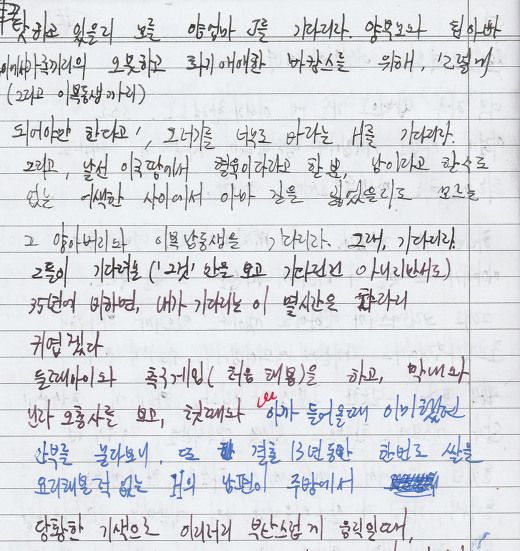 하고 있을리 모를 양엄마 J를 기다리라. 양부모와 친아빠
오붓하고 화기애애한 바캉스를 위해, '그렇게
(그리고 이복동생까지)
되어야만 한다고', 오더기를 바라는 H를 기다리라.
그리고, 낯선 이국땅에서 형육이다라고 한 분, 남이라고 할수도
없는 어색한 사이에서 아마 길을 잃었을리도 모르는
그 양아버리와 이복남동생을 기다리라. 그래, 기다리라.
그들이 기다려올 ('그것' 만을 보고 기다린건 아니리만서도)
35년에 비하면, 내가 기다리는 이 몇시간은 차라리
귀엽겠다
둘째아이와 축구게임( 처음 해봄)을 하고, 막내와
만다 오홍사를 보고, 첫때와 아까 들어올때 이미했던
안부를 물어보니, 또 결혼 13년동안 한번도 쌀을
요리해본적 없는 H의 남편이 주방에서
당황한 기색으로 이리러리 부산스럽게 움직일때,